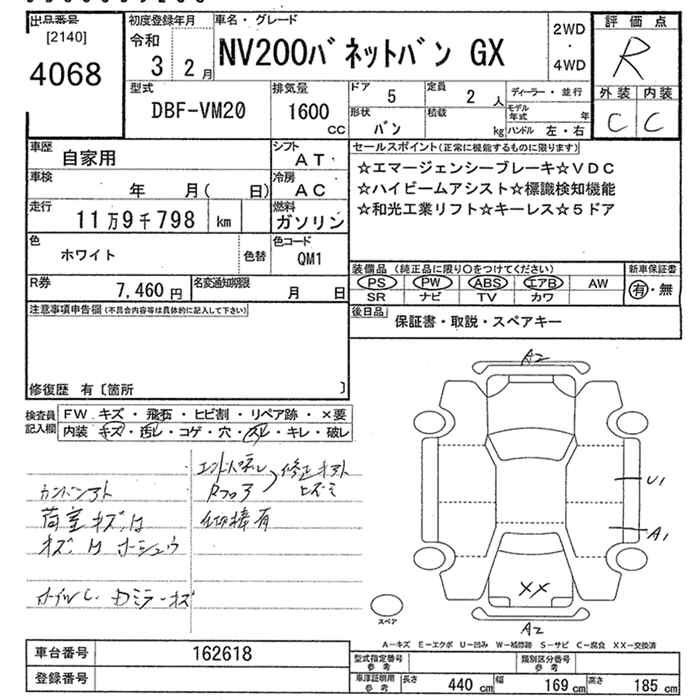 出品番号
[2140]
4068
初度登録年月
令和
3 2月
車名・グレード
NV200バネットバン GX
2WD
・
4WD
評価点
R
外装 内装
C C
型式
DBF-VM20
排気量
1600
CC
ドア 5
定員 2 人
ディーラー・並行
モデル年式 年
形状 バン
積載 kg
ハンドル 左・右
車歴 自家用
シフト AT
セールスポイント(正常に機能するものに限ります)
☆エマージェンシーブレーキ☆VDC
☆ハイビームアシスト☆標識検知機能
☆和光工業リフト☆キーレス☆5ドア
車検 年 月( 日)
冷房 AC
走行 11万9千798 km
燃料 ガソリン
色 ホワイト 色替
色コード QM1
装備品(純正品に限り○をつけてください)
新車保証書
PS PW ABS エアB AW
有・無
SR ナビ TV カワ
R券 7,460円
名変通知期限 月 日
後日品 保証書・取説・スペアキー
注意事項申告欄(不具合内容等は具体的に記入して下さい)
修復歴 有〔箇所 〕
検査員記入欄
FW キズ・飛石・ヒビ割・リペア跡・×要
内装 キズ・汚レ・コゲ・穴・スレ・キレ・破レ
修正キアト
Rフロア
ヒズミ
荷室キズ、凹
有
A2
U1
A1
XX
A2
スペア
A-キズ E-エクボ U-凹み W-補修跡 S-サビ C-腐食 XX-交換済
車台番号 162618
登録番号
型式指定番号参考
類別区分番号参考
車庫証明用参考 長さ 440cm 幅 169cm 高さ 185cm